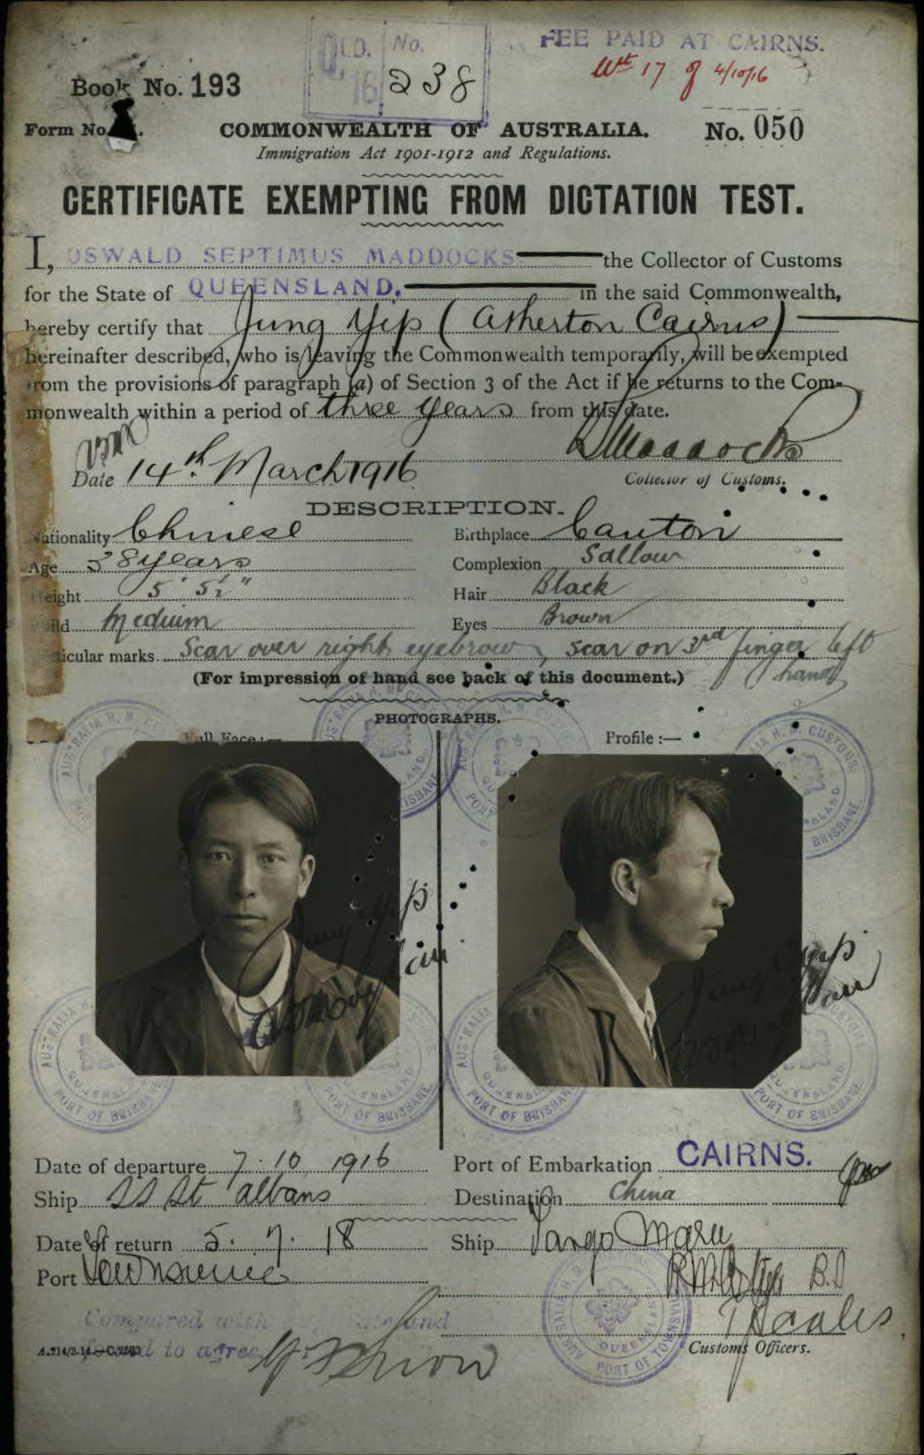 QLD. No.
16 238
FEE PAID AT CAIRNS.
17 of 4/10/16
Book No. 193
Form No.
COMMONWEALTH OF AUSTRALIA.
No. 050
Immigration Act 1901-1912 and Regulations.
CERTIFICATE EXEMPTING FROM DICTATION TEST.
I, OSWALD SEPTIMUS MADDOCKS the Collector of Customs
for the State of QUEENSLAND. in the said Commonwealth,
hereby certify that Jung Yip (Atherton Cairns)
hereinafter described, who is leaving the Commonwealth temporarily, will be exempted
from the provisions of paragraph (a) of Section 3 of the Act if he returns to the Com-
monwealth within a period of three years from this date.
Date 14th March 1916
Maddocks
Collector of Customs.
DESCRIPTION.
Nationality Chinese Birthplace Canton
Age 38 years Complexion Sallow
Height 5' 5½" Hair Black
Build Medium Eyes Brown
Particular marks Scar over right eyebrow, scar on 3rd finger left
hand
(For impression of hand see back of this document.)
PHOTOGRAPHS.
Full Face:— Profile :—
Jung Yip
Jung Yip
AUSTRALIA H. M. CUSTOMS.
QUEENSLAND
PORT OF BRISBANE
Date of departure 7. 10 1916 Port of Embarkation CAIRNS.
Ship SS St Albans Destination China
Date of return 5. 7. 18 Ship Tango Maru
Port Townsville
B.I
Compared with
found to agree
PORT OF TOWNSVILLE
Customs Officers.